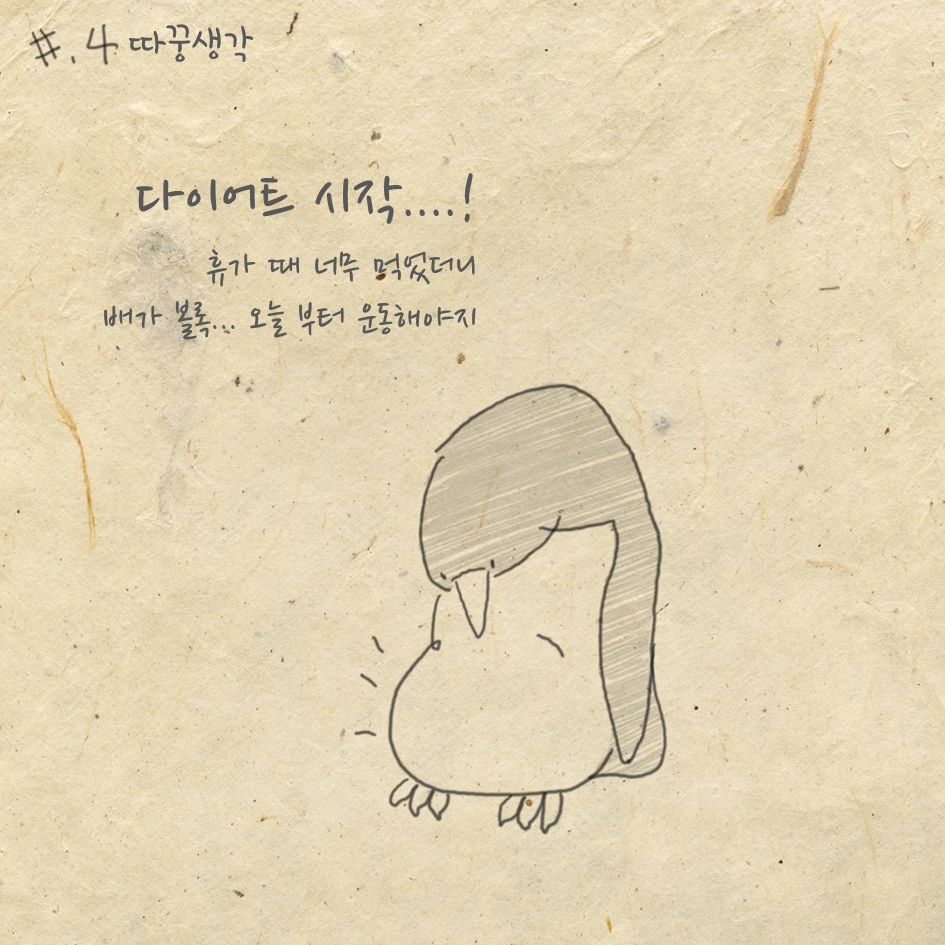 #.4 따꿍생각
다이어트 시작....!
휴가 때 너무 먹었더니
배가 볼록... 오늘 부터 운동해야지